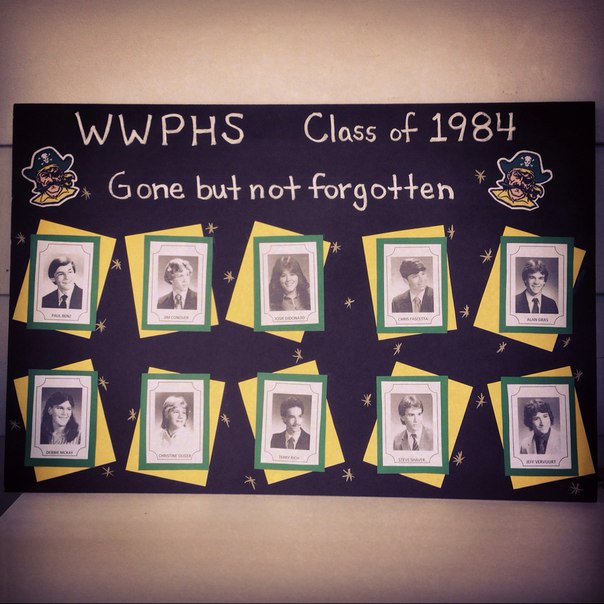 WWPHS Class of 1984
Gone but not forgotten
PAUL BENZ
JIM CONOVER
JODIE DIDONATO
CHRIS FASCETTA
ALAN GRAS
DEBBIE MCKAY
CHRISTINE SEIGER
TERRY RICH
STEVE SHAVER
JEFF VERVOORT